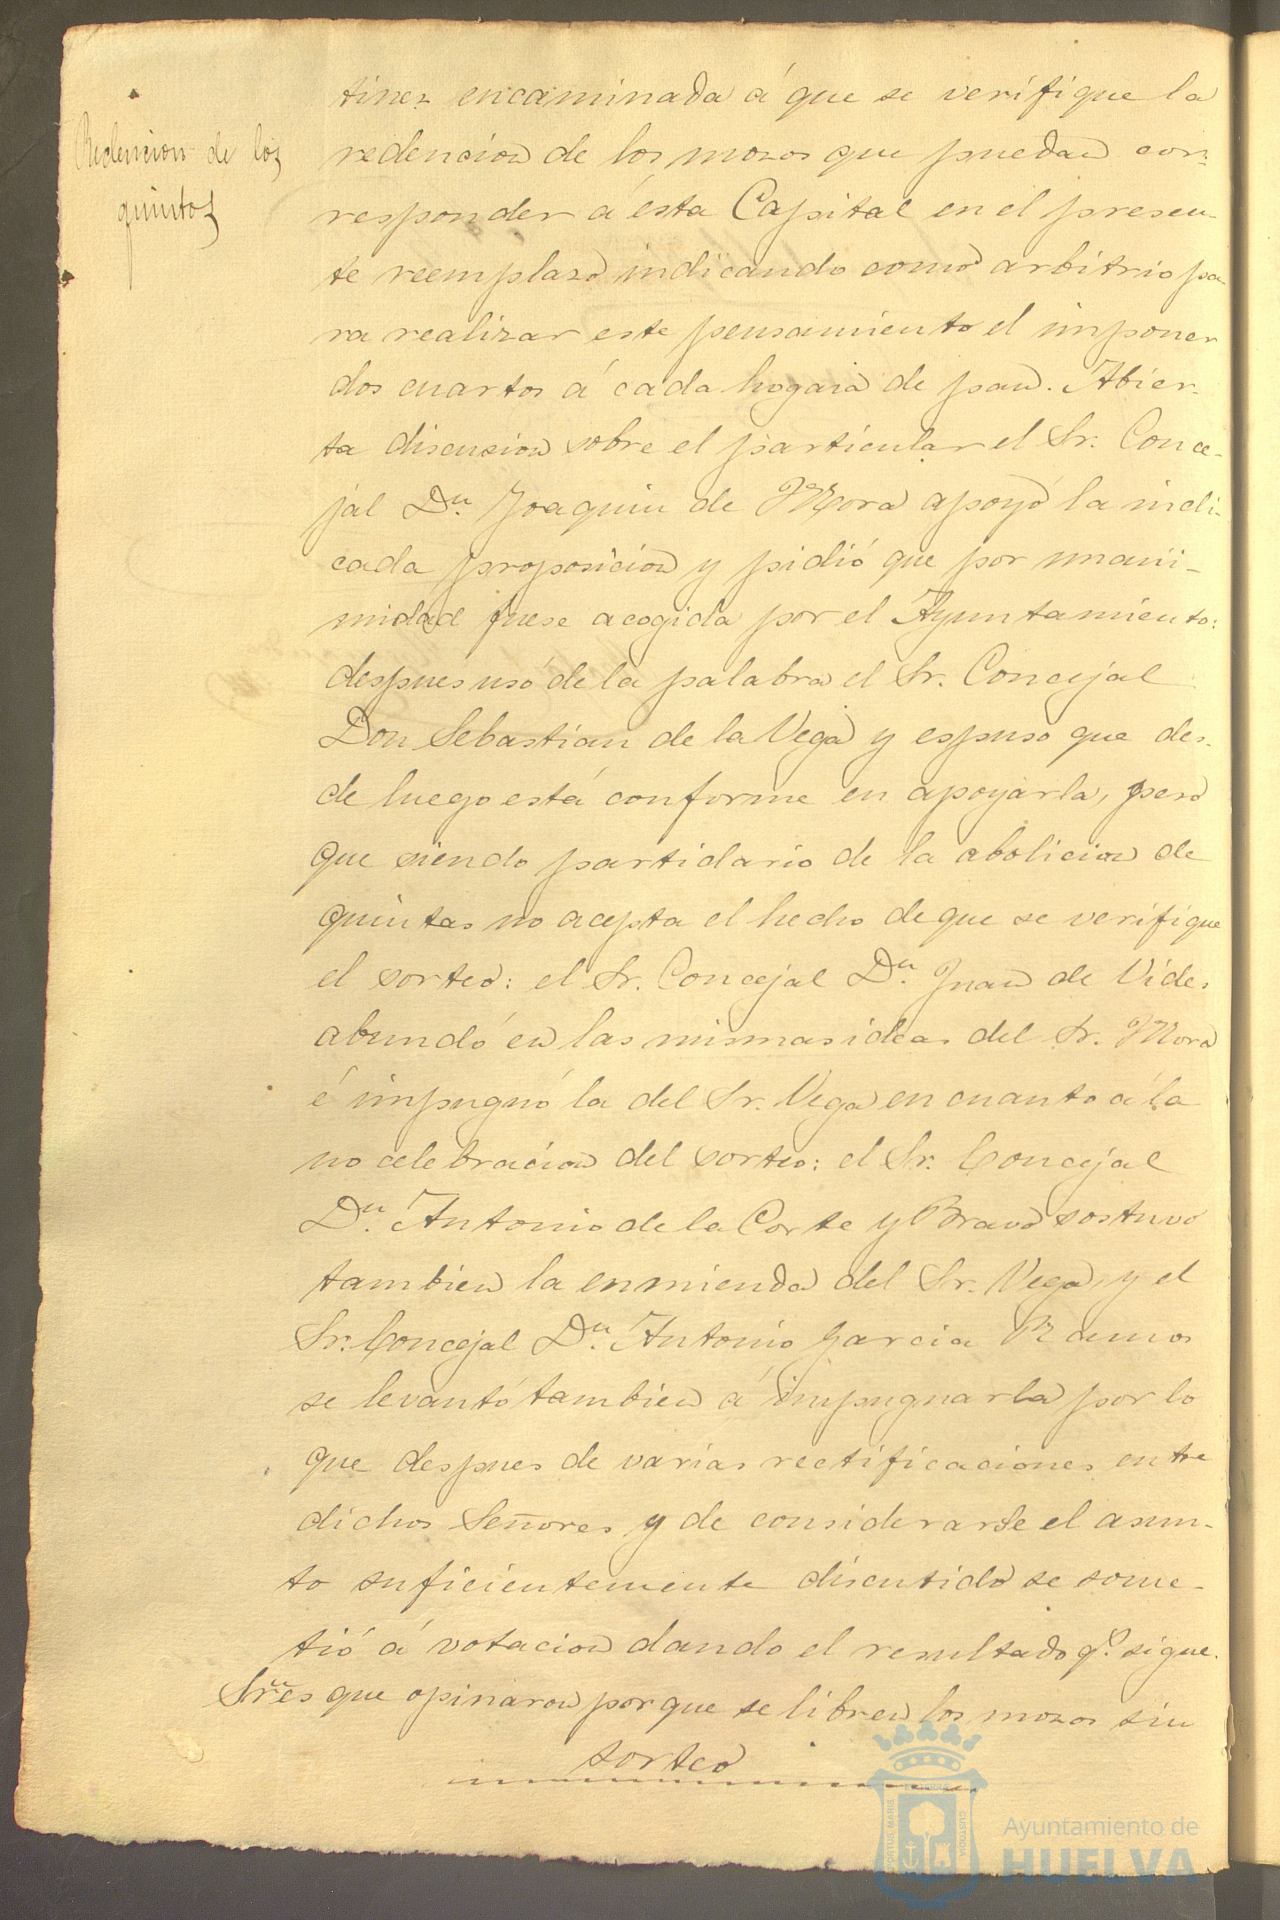 Redencion de los
quintos
tinez encaminada á que se verifique la
redencion de los mozos que puedan cor-
responder á ésta Capital en el presen-
te reemplazo indicando como arbitrio pa-
ra realizar este pensamiento el imponer
dos cuartos á cada hogaza de pan. Abier-
ta discusion sobre el particular el Sr. Conce-
jal Dn. Joaquin de Mora apoyó la indi-
cada proposicion y pidió que por unani-
midad fuese acogida por el Ayuntamiento:
despues usó de la palabra el Sr. Concejal
Don Sebastian de la Vega y espuso que des-
de luego está conforme en apoyarla, pero
que siendo partidario de la abolicion de
quintas no acepta el hecho de que se verifique
el sorteo: el Sr. Concejal Dn. Juan de Vides
abundó en las mismas ideas del Sr. Mora
é impugnó la del Sr. Vega en cuanto á la
no celebracion del sorteo: el Sr. Concejal
Dn. Antonio de la Corte y Bravo sostuvo
tambien la enmienda del Sr. Vega, y el
Sr. Concejal Dn. Antonio Garcia Ramos
se levantó tambien á impugnarla por lo
que despues de varias rectificaciones entre
dichos Señores y de considerarse el asun-
to suficientemente discutido se some-
tió á votacion dando el resultado qe. sigue.
Sres que opinaron por que se libren los mozos sin
sorteo
PORTUS MARIS
CUSTODIA
Ayuntamiento de
HUELVA